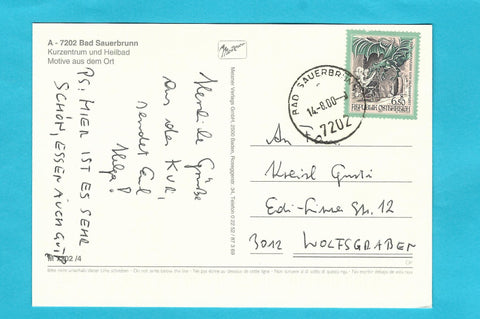 A - 7202 Bad Sauerbrunn
Kurzentrum und Heilbad
Motive aus dem Ort
Herzliche Grüße
aus der KUR,
sendet Euch
Helga!
PS: HIER IST ES SEHR
SCHÖN, ESSEN AUCH GUT
7202 /4
Mesner Verlags GmbH, 2500 Baden, Roseggerstr. 34, Telefon 0 22 52 / 87 3 69
BAD SAUERBRUNN
14-8.00-
7202
6.50
REPUBLIK ÖSTERREICH
An Fa.
Kreisl Gusti
Edi-Str. 12
3012 WOLFSGRABEN
Bitte nicht unterhalb dieser Linie schreiben - Do not write below this line - Ne pas écrire au dessous de cette ligne - Non scrivere al di sotto di questa riga - No escribir debajo de esta línea